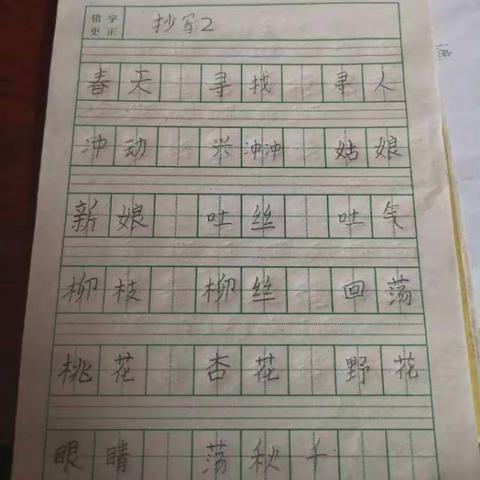 错字更正 抄写2
春天 寻找 寻人
冲动 兴冲冲 姑娘
新娘 吐丝 吐气
柳枝 柳丝 回荡
桃花 杏花 野花
眼睛 荡秋千